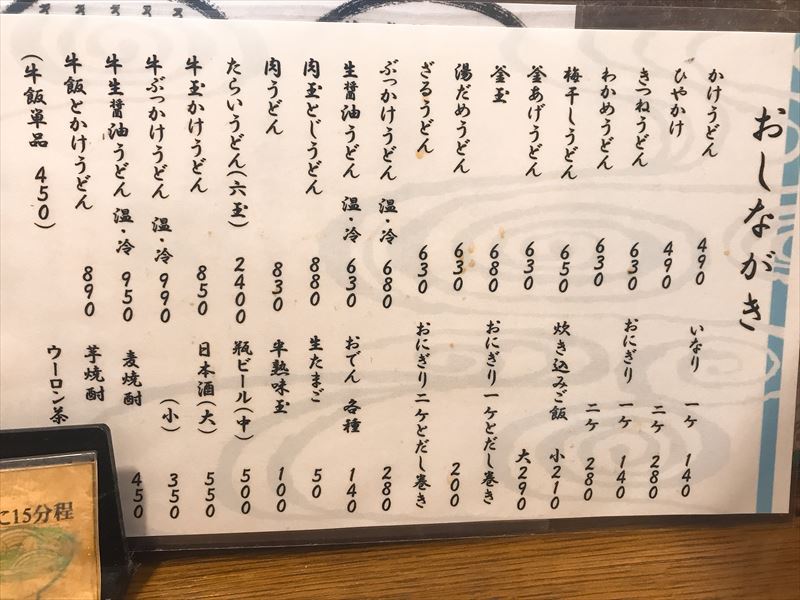 おしながき
かけうどん 490
ひやかけ 490
きつねうどん 630
わかめうどん 630
梅干しうどん 650
釜あげうどん 630
釜玉 680
湯だめうどん 630
ざるうどん 630
ぶっかけうどん 温・冷 680
生醤油うどん 温・冷 630
肉玉とじうどん 880
肉うどん 830
たらいうどん(六玉) 2400
牛玉かけうどん 850
牛ぶっかけうどん 温・冷 990
牛生醤油うどん 温・冷 950
牛飯とかけうどん 890
(牛飯單品 450)
いなり 一ケ 140
二ケ 280
おにぎり 一ケ 140
二ケ 280
炊き込みご飯 小210
大290
おにぎり一ケとだし巻き 200
おにぎり二ケとだし巻き 280
おでん 各種 140
生たまご 50
半熟味玉 100
瓶ビール(中) 500
日本酒(大) 550
(小) 350
麦焼酎 450
芋焼酎
ウーロン茶
に15分程